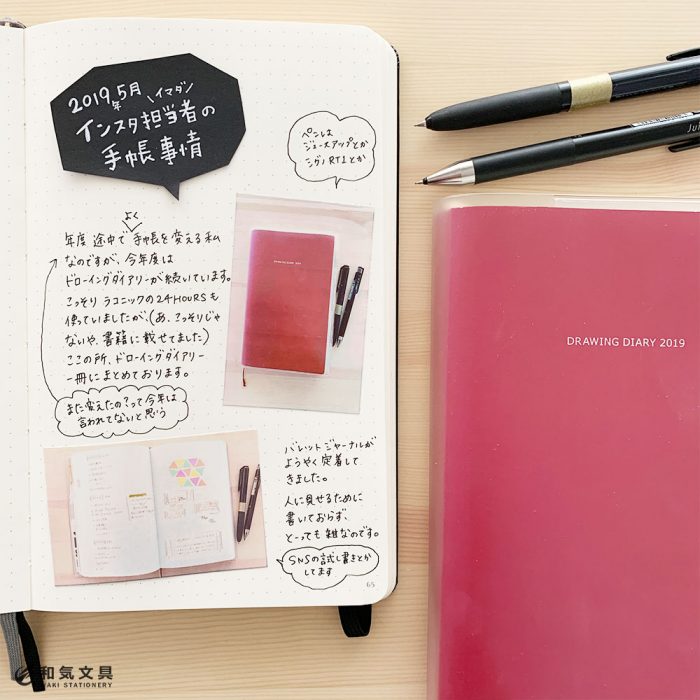 2019年5月 \イマダン/
インスタ担当者の
手帳事情
ペンは
ジュースアップとか
シグノRT1とか
よく
年度途中で手帳を変える私
なのですが、今年度は
ドローイングダイアリーが続いています。
こっそりラコニックの24HOURSも
使っていましたが、(あ、こっそりじゃ
ないや、書籍に載せてました)
ここの所、ドローイングダイアリー
一冊にまとめております。
また変えたの?って今年は
言われてないと思う
DRAWING DIARY 2019
バレットジャーナルが
ようやく定着して
きました。
人に見せるために
書いておらず、
とっても雑なのです。
SNSの試し書きとか
してます
65
DRAWING DIARY 2019
和気文具
WAKI STATIONERY